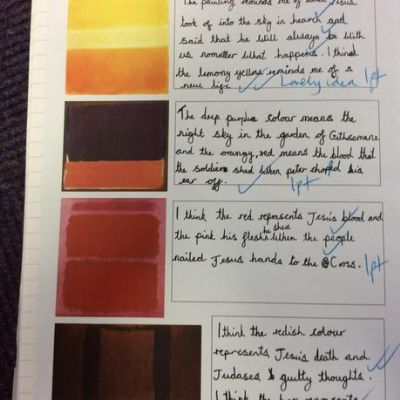 The painting reminds me of when Jesus
took of into the sky in heaven and
said that he will always be with
us nomatter what happens. I think
the lemony yellow reminds me of a
new life
Lovely idea 1pt
The deep purple colour means the
night sky in the garden of Gethsemane
and the orangy, red means the blood that
the soldiers shed when peter chopped his
ear off.
1pt
I think the red represents Jesus blood and
he shed
the pink his flesh when the people
nailed Jesus hands to the Cross.
1pt
I think the redish colour
represents Jesus death and
Judases guilty thoughts.
I think the represents